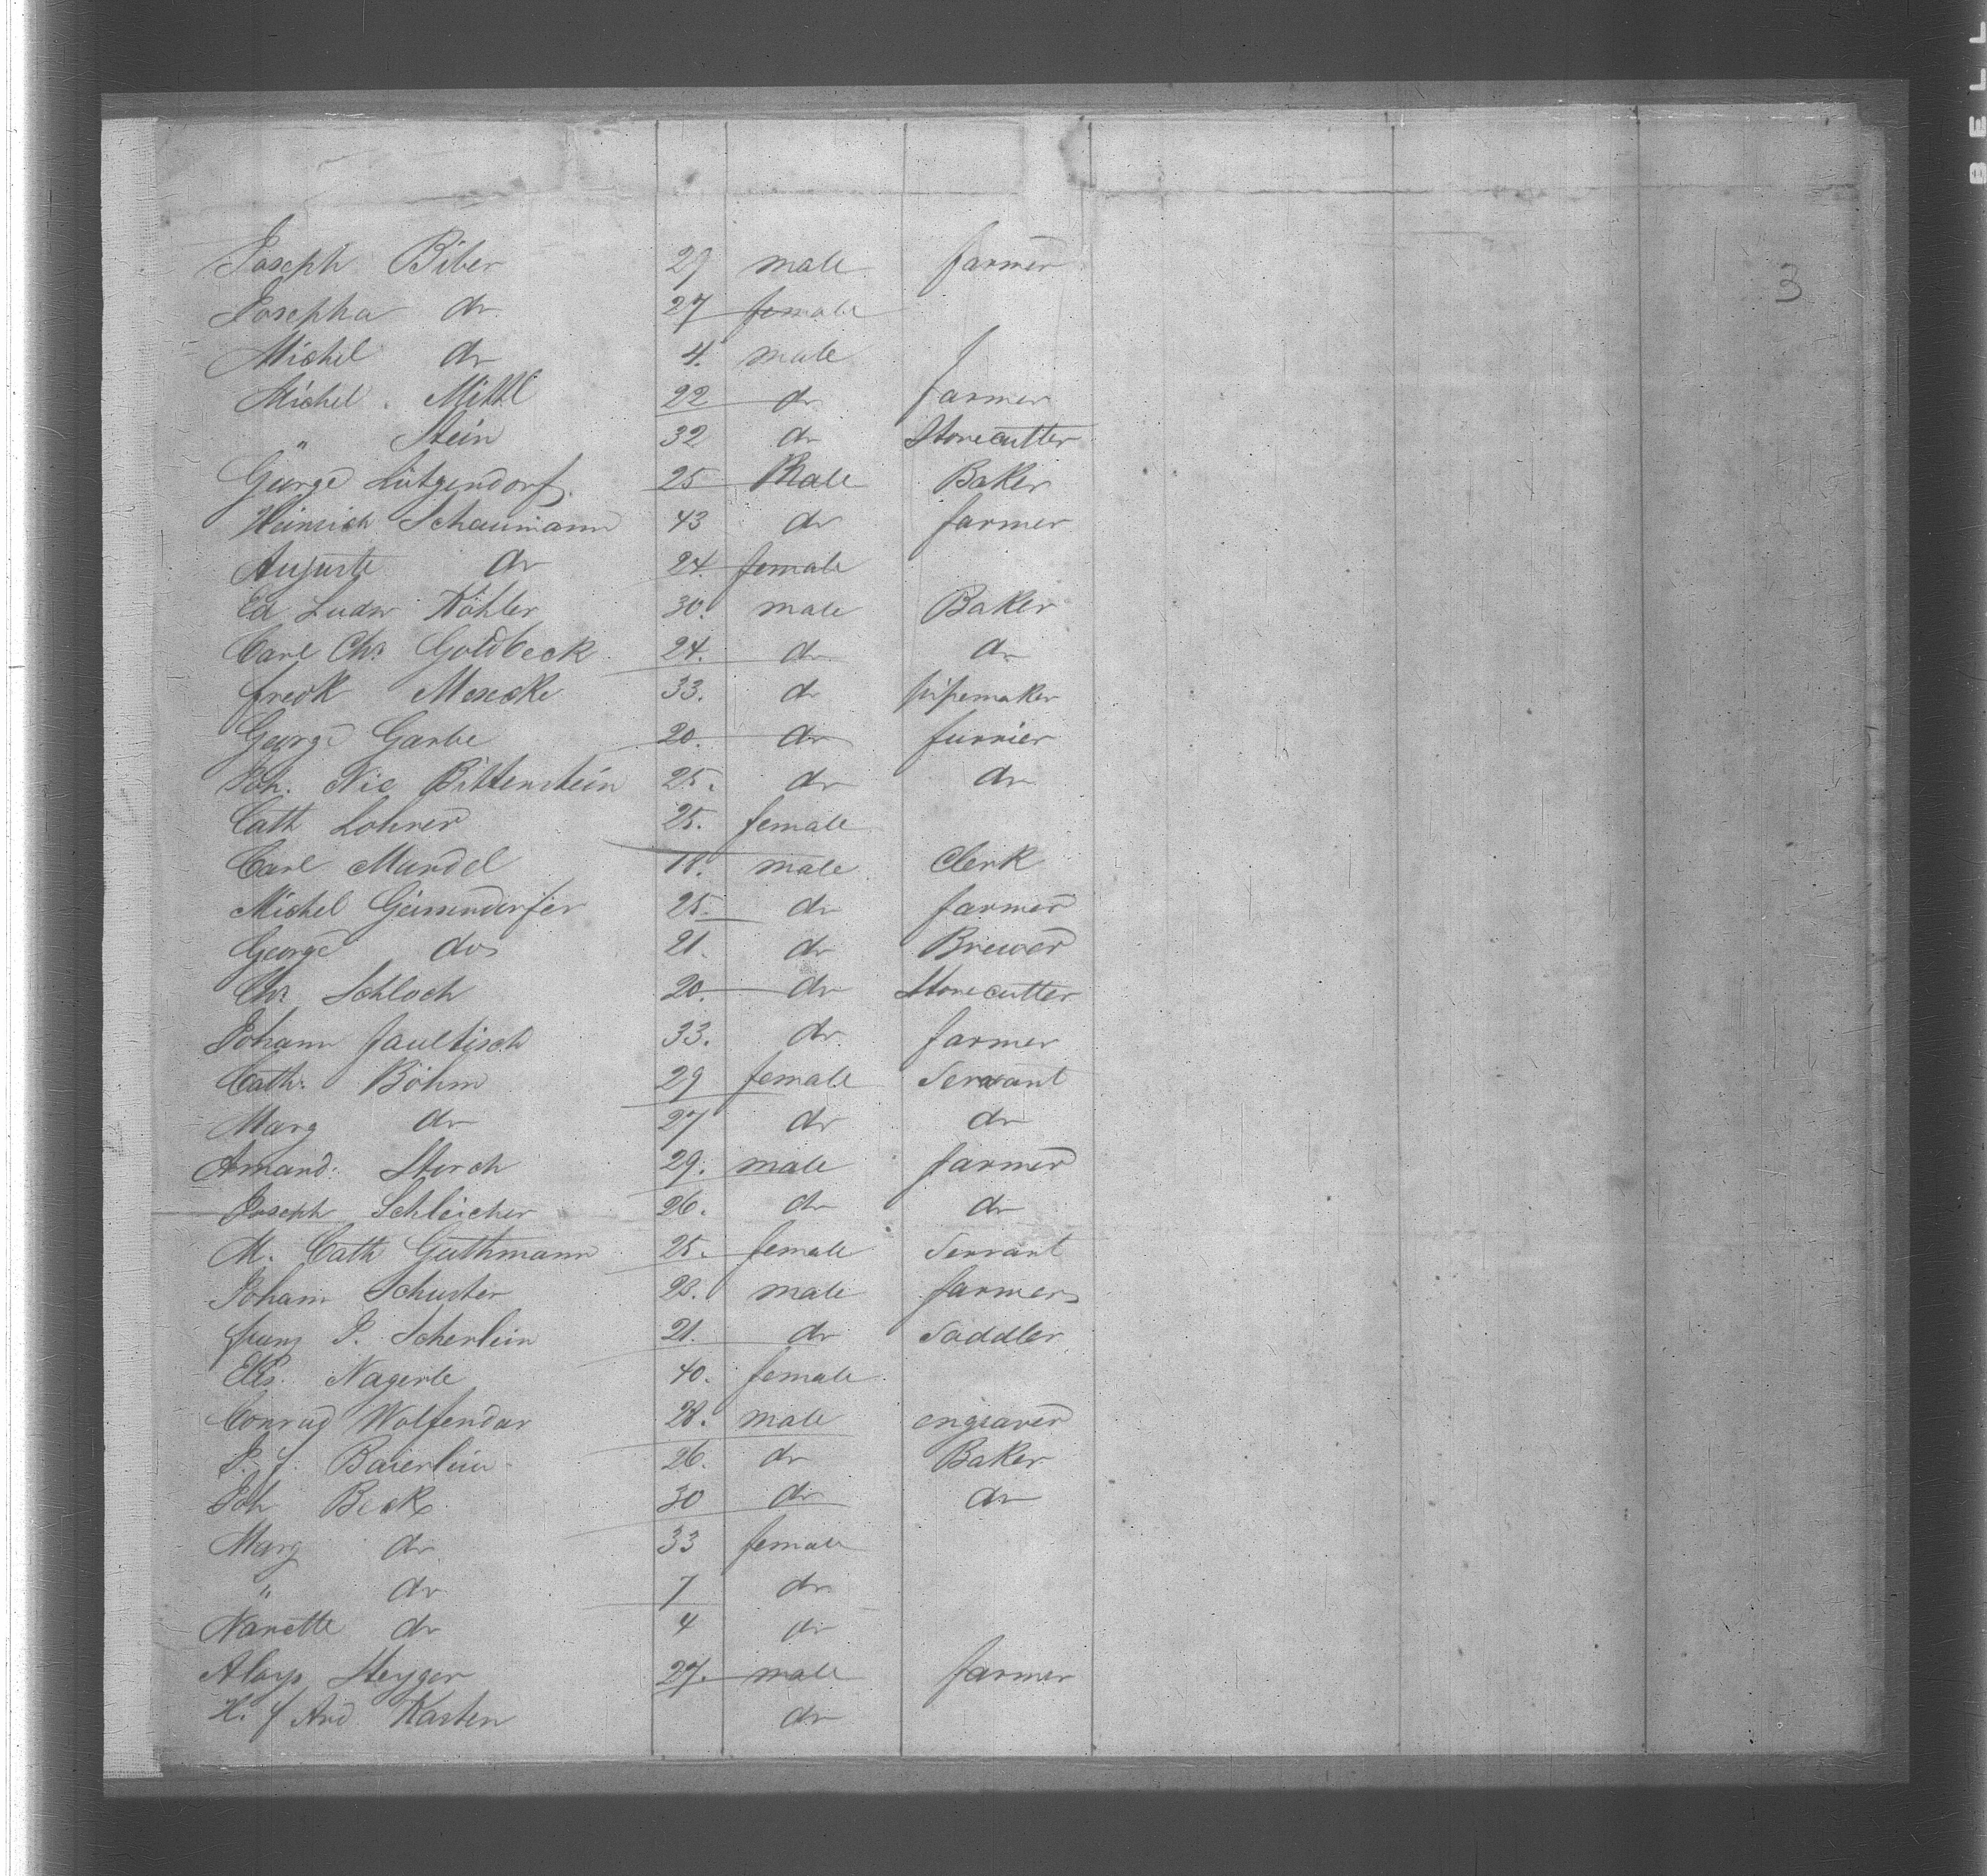 BELL
3
Joseph Biber 29 male farmer
Josepha do 27 female
Michel do 4. male
Michel Mittl 22 do farmer
" Stein 32 do Stonecutter
George Lützendorf 25 Male Baker
Heinrich Schaumann 43 do farmer
Auguste do 24. female
Ed Ludw Köhler 30. male Baker
Carl Chr. Goldbeck 24. do do
Fredk 33. do pipemaker
George Garbe 20. do furrier
Joh. Nic Bittenstein 25. do do
Cath Lohrer 25. female
Carl Mundel 18. male Clerk
Michel 25. do farmer
George do 21. do Brewer
Chr. Schloch 20. do Stonecutter
Johann Faultisch 33. do farmer
Cath. Böhm 29 female Servant
Marg do 27 do do
Amand. Storch 29. male farmer
Joseph Schleicher 26. do do
M. Cath Guthmann 25. female Servant
Johann Schuster 23. male farmer
J. Scherlein 21. do Saddler
Nagerle 40. female
Conrad Wolfendar 28. male engraver
J. f. Baierlein 26. do Baker
Joh Beck 30 do do
Marg do 33 female
" do 7 do
Nanette do 4 do
Aloys Steyger 27. male farmer
H. f And Karsten do